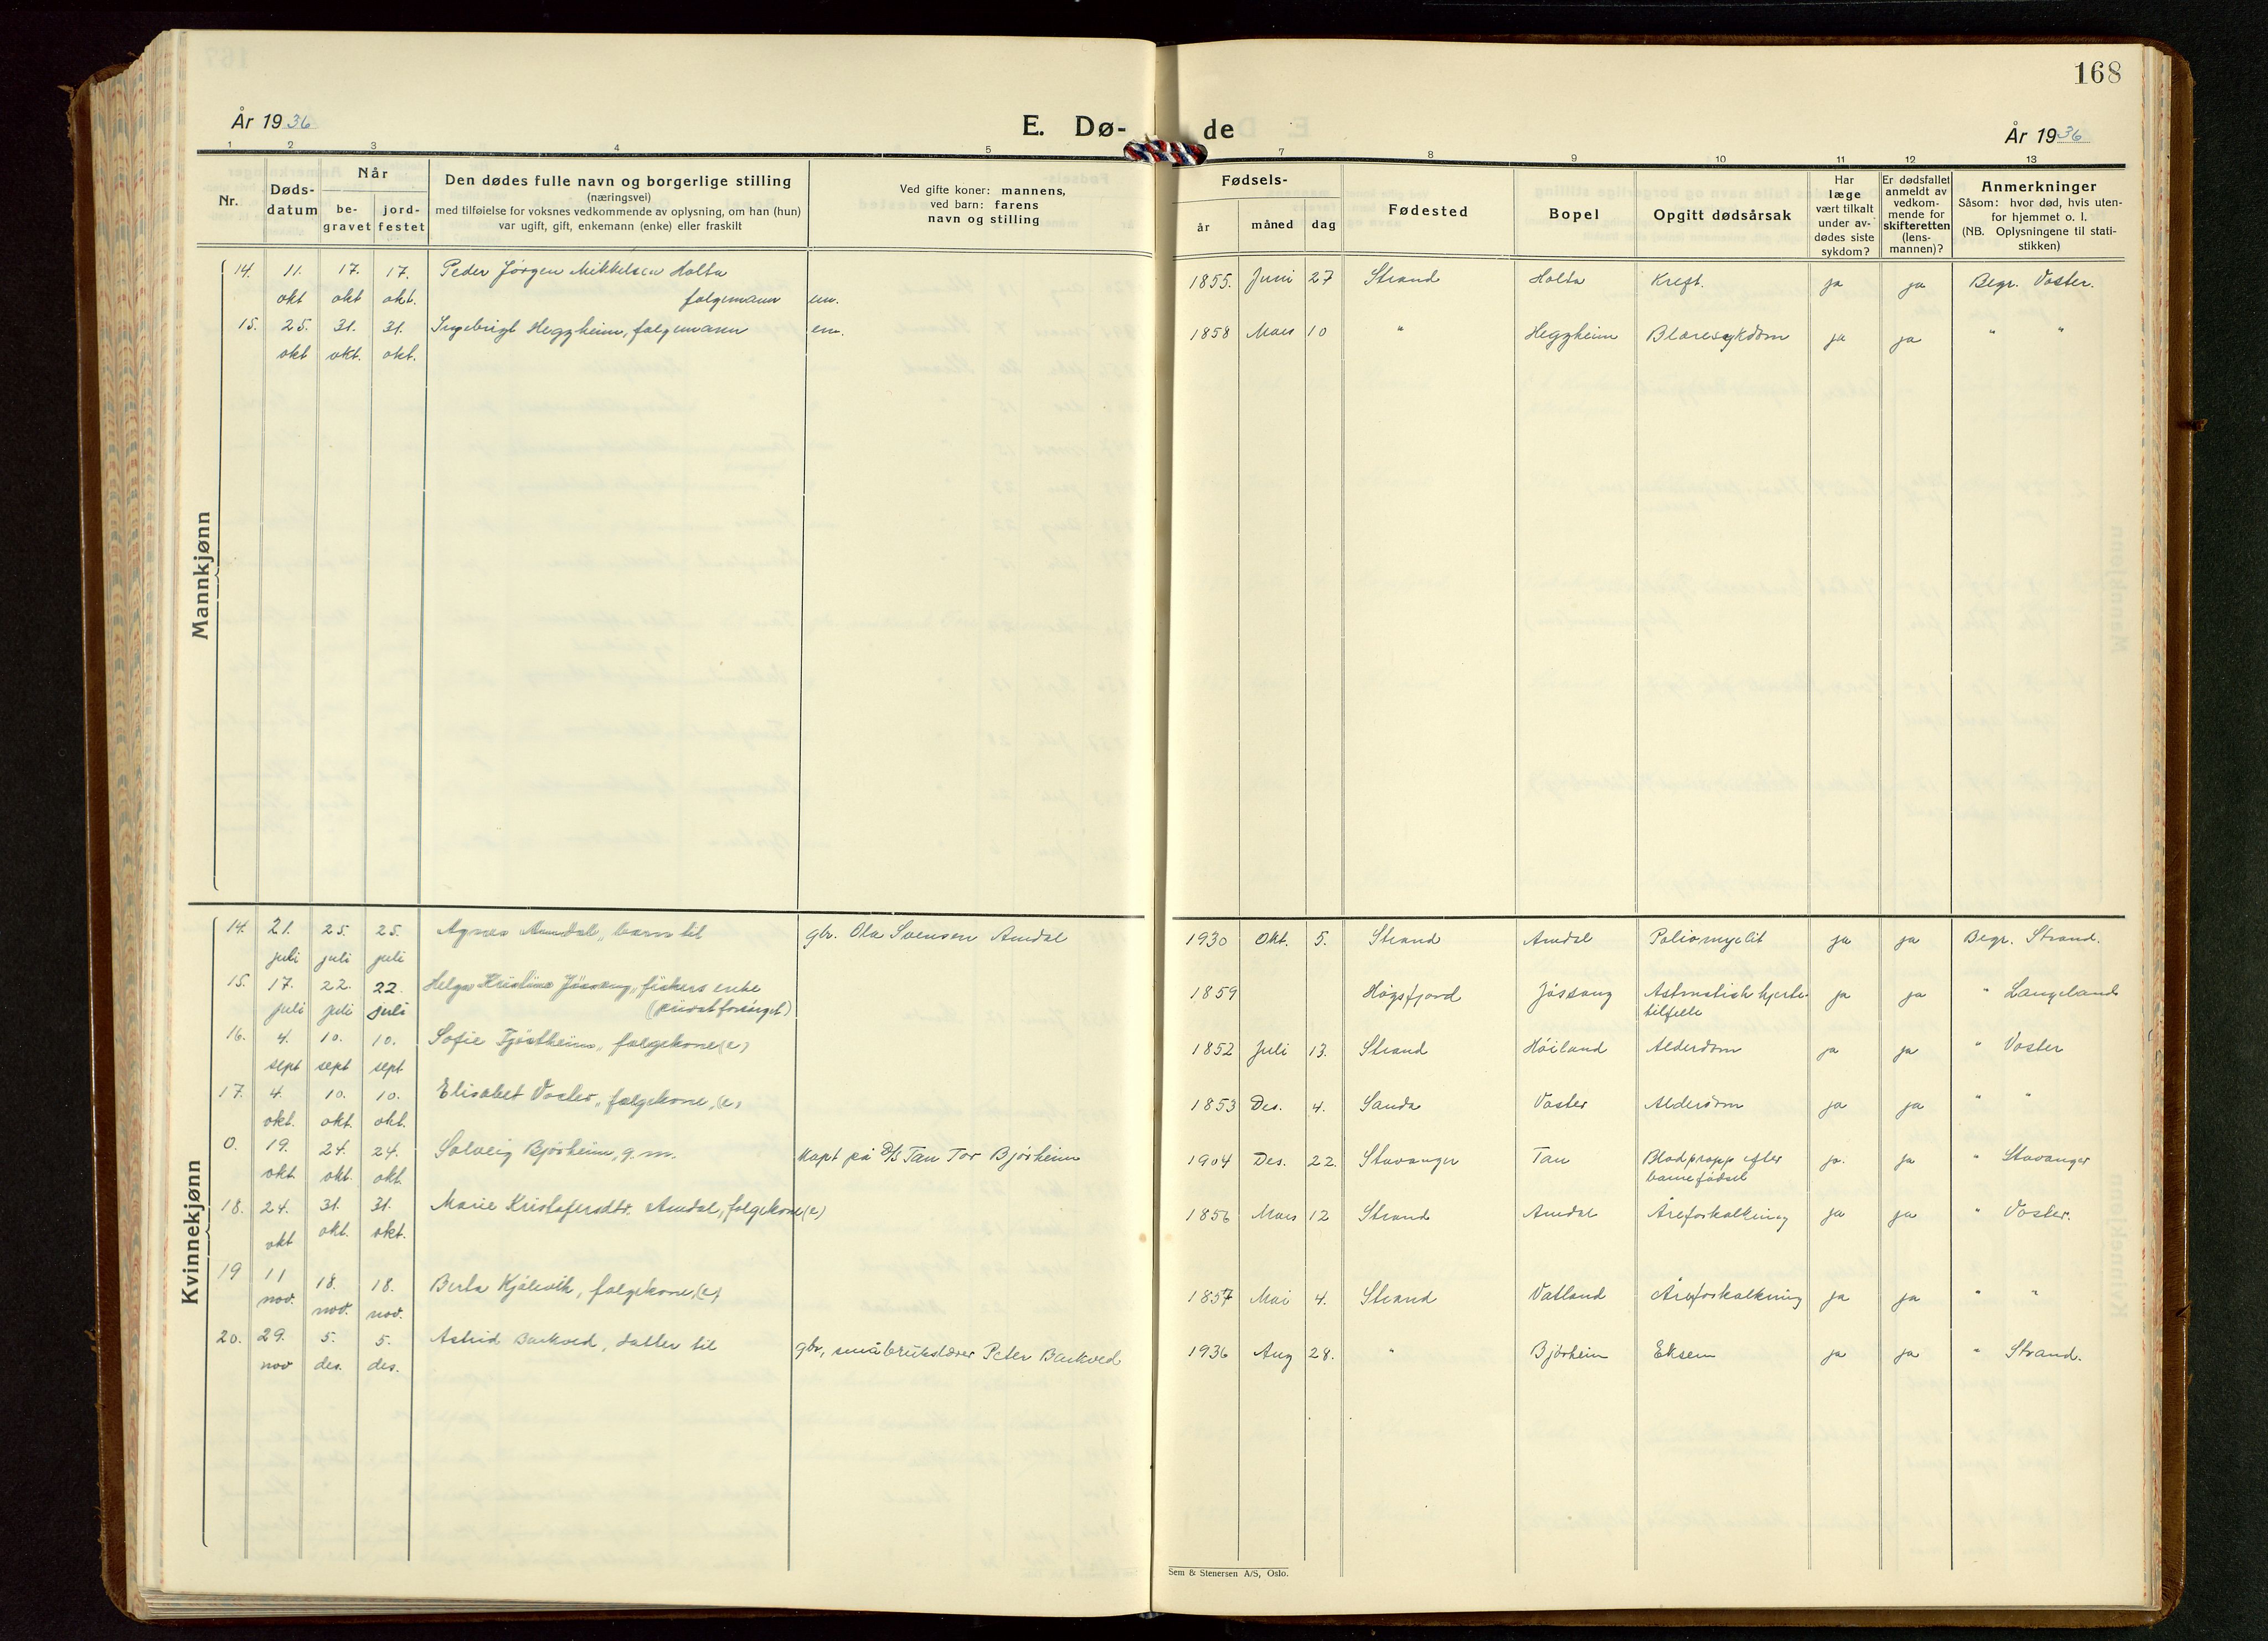 168
År 1936
E. Dø-
de
År 1936
1 2 3 4 5 7 8 9 10 11 12 13
Nr.
Døds-
datum
Når
be-
gravet
jord-
festet
Den dødes fulle navn og borgerlige stilling
(næringsvei)
med tilføielse for voksnes vedkommende av oplysning, om han (hun)
var ugift, gift, enkemann (enke) eller fraskilt
Ved gifte koner: mannens,
ved barn: farens
navn og stilling
Fødsels-
år
måned
dag
Fødested
Bopel
Opgitt dødsårsak
Har
læge
vært tilkalt
under av-
dødes siste
sykdom?
Er dødsfallet
anmeldt av
vedkom-
mende for
skifteretten
(lens-
mannen)?
Anmerkninger
Såsom: hvor død, hvis uten-
for hjemmet o. l.
(NB. Oplysningene til stati-
stikken)
Mannkjønn
14. 11. 17. 17. Peder Jörgen Mikkelsen Holta 1855. Juni 27 Strand Holta Kreft. ja ja Begr. Voster.
okt okt okt. folgemann em.
15. 25. 31. 31. Ingebrigt Heggheim, folgemann em. 1858 Mars 10 " Heggheim Blæresykdom ja ja " "
okt okt. okt.
Kvinnekjønn
14. 21. 25. 25. Agnes Amdal, barn til gbr. Ola Svensen Amdal 1930 Okt. 5. Strand Amdal Poliomyelit ja ja Begr. Strand.
juli juli juli
15. 17. 22. 22. Helga Kristine Jössang, fiskers enke 1859 Högsfjord Jössang Astmatisk hjerte- ja ja " Langeland
juli juli juli (privat forsörget) tilfelle
16. 4. 10. 10. Sofie Tjöstheim, folgekone (e) 1852 Juli 13. Strand Höiland Alderdom ja ja " Voster
sept sept sept
17. 4. 10. 10. Elisabet Voster, folgekone, (e) 1853 Des. 4. Sauda Voster Alderdom ja ja " "
okt. okt. okt.
0. 19. 24. 24. Solveig Björheim, g. m. kapt på D/S Tau Tor Björheim 1904 Des. 22. Stavanger Tau Blodpropp efter ja. ja " Stavanger
okt okt. okt barnefödsel
18. 24. 31. 31. Marie Kristofersdtr. Amdal, folgekone (e) 1856 Mars 12 Strand Amdal Åreforkalkning ja ja " Voster.
okt okt. okt.
19 11 18. 18. Berta Kjölevik, folgekone, (e) 1857 Mai 4. Strand Vatland Åreforkalkning ja ja " "
nov. nov. nov.
20. 29. 5. 5. Astrid Barkved, datter til gbr, småbrukslærer Peter Barkved 1936 Aug 28. " Björheim Eksem ja ja " Strand.
nov des. des.
Sem & Stenersen A/S, Oslo.